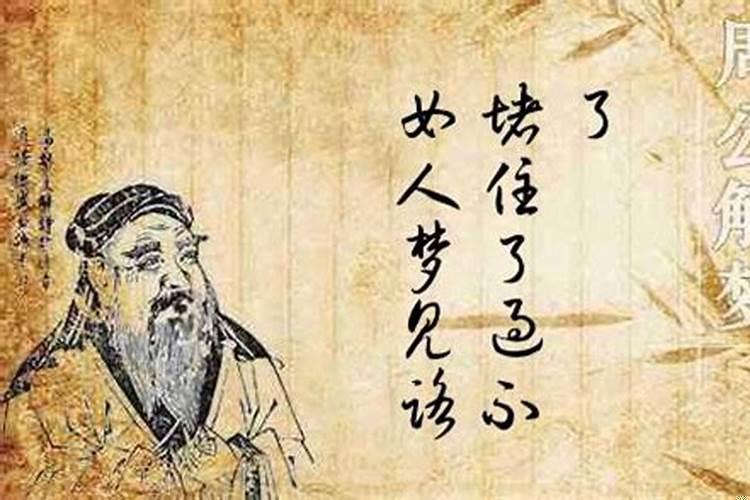 女人梦见路
堵住了过不
了
周公解梦